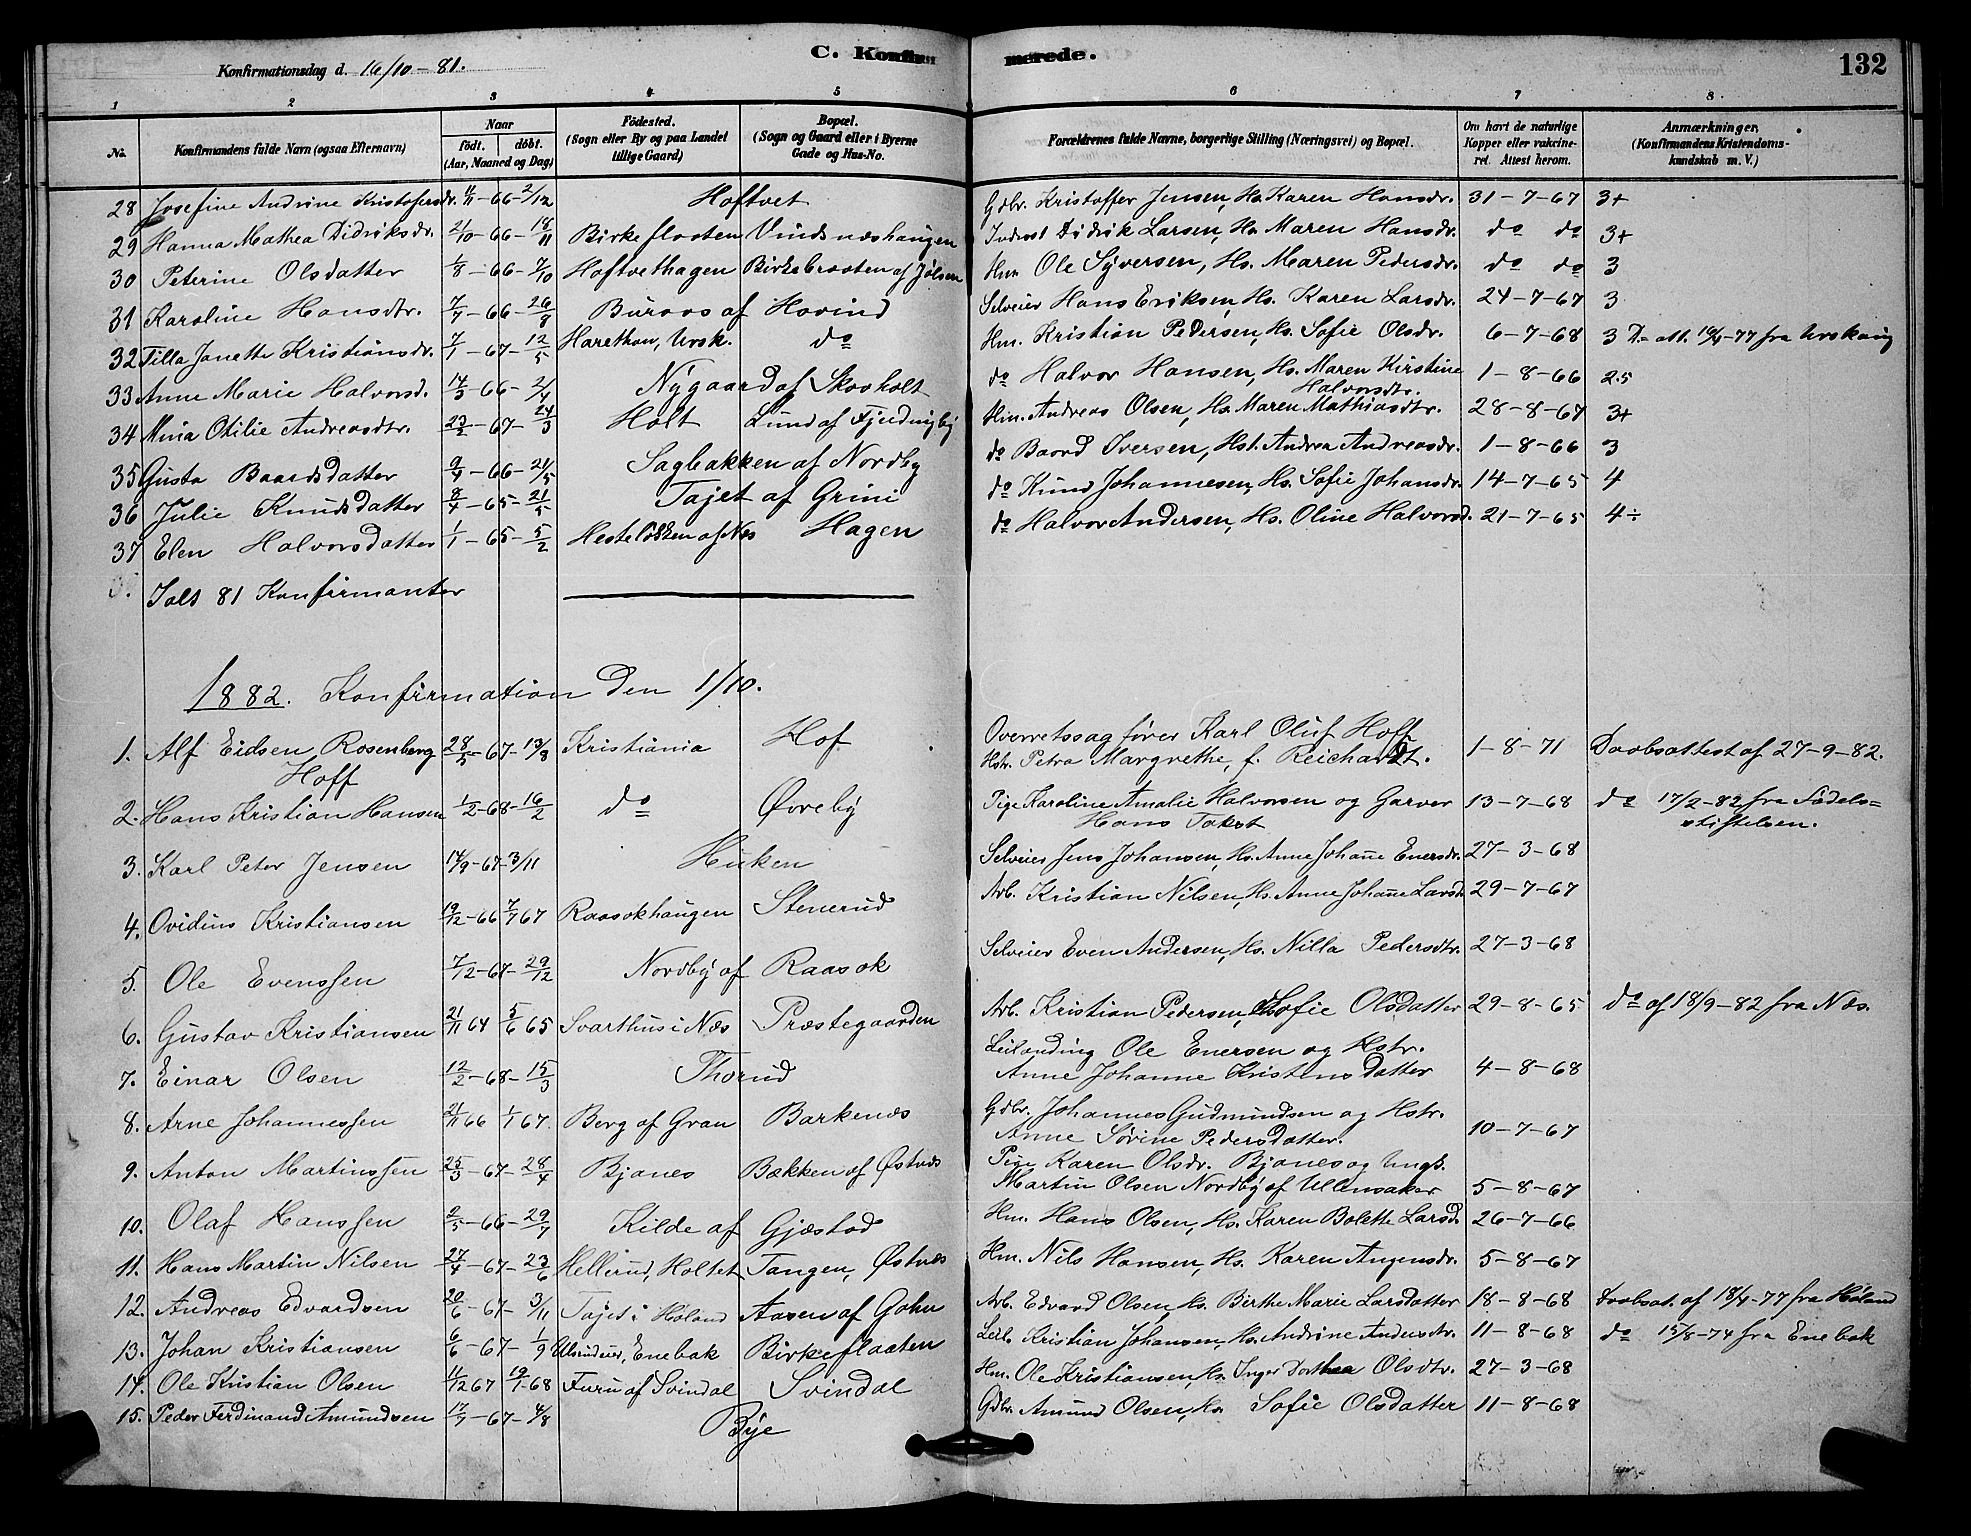 C. Konfirmerede. 132
Konfirmationsdag d. 16/10-81.
1 2 3 4 5 6 7 8.
No. Konfirmandens fulde Navn (ogsaa Efternavn) Naar födt. döbt. (Aar, Maaned og Dag) Födested. (Sogn eller By og paa Landet tillige Gaard) Bopæl. (Sogn og Gaard eller i Byerne Gade og Hus-No. Forældrenes fulde Navne, borgerlige Stilling (Næringsvei) og Bopæl. Om havt de naturlige Kopper eller vakcineret. Attest herom. Anmærkninger, (Konfirmandens Kristendomskundskab m. V.)
28 Josefine Andrine Kristofersdr. 4/11-66-2/12 Hoftvet Gdbr. Kristoffer Jensen, Hs. Karen Hansdr. 31-7-67 3+
29 Hanna Mathea Didriksdr. 2/10-66-18/11 Birkeflaaten Vindsnæshaugen Inderst Didrik Larsen, Hs. Maren Hansdr. do do 3+
30 Peterine Olsdatter 1/8-66-7/10 Hoftvethagen Birkebraaten af Jølsen Hm Ole Syversen, Hs. Maren Pedersdr. do do 3
31 Karoline Hansdtr. 7/7-66-26/8 Buraas af Hovind Selveier Hans Eriksen, Hs. Karen Larsdr. 24-7-67 3
32 Tilla Janette Kristiansdr. 7/1-67-12/5 Harethon, Ursk. do Hm. Kristian Pedersen, Hs. Sofie Olsdr. 6-7-68 3 D.-att. 19/4-77 fra Urskoug
33 Anne Marie Halvorsd. 14/3-66-2/4 Nygaard af Skovholt do Halvor Hansen, Hs. Maren Kirstine Halvorsdtr. 1-8-66 2.5
34 Mina Otilie Andreasdtr. 23/2-67-24/3 Holt Lund af Fjudungby Hm. Andreas Olsen, Hs. Maren Mathiasdtr. 28-8-67 3+
35 Gusta Baardsdatter 9/4-66-21/5 Sagbakken af Nordby do Baard Iversen, Hst. Andrea Andreasdr. 1-8-66 3
36 Julie Knudsdatter 8/4-65-21/5 Tajet af Grini do Knud Johannesen, Hs. Sofie Johansdr. 14-7-65 4
37 Elen Halvorsdatter 1/1-65-5/2 Hesteløkken af Næs Hagen do Halvor Andersen, Hs. Oline Halvorsd. 21-7-65 4÷
Ialt 81 Konfirmanter
1882. Konfirmation den 1/10.
1. Alf Eidsen Rosenberg Hoff 28/5-67-13/9 Kristiania Hof Overretssagfører Karl Oluf Hoff Hstr. Petra Margrethe, f. Reichardt. 1-8-71 Daabsattest af 27-9-82.
2. Hans Kristian Hansen 1/2-68-16/2 do Øvreby Pige Karoline Amalie Halvorsen og Garver Hans Takst 13-7-68 do 17/2-82 fra Fødelsstiftelsen.
3. Karl Peter Jensen 14/9-67-3/11 Huken Selveier Jens Johansen, Hs. Anne Johanne Enersdr. 27-3-68
4. Ovidius Kristiansen 19/12-66 7/7 67 Raasokhaugen Stenerud Arb. Kristian Nilsen, Hs. Anne Johanne Larsd. 29-7-67
5. Ole Evenssen 7/12-67-29/12 Nordby af Raasok Selveier Even Andersen, Hs. Nilla Pedersdtr. 27-3-68
6. Gustav Kristiansen 21/11 64 5/6 65 Svarthus i Næs Præstegaarden Arb. Kristian Pedersen, Sofie Olsdatter 29-8-65 do af 18/9-82 fra Næs.
7. Einar Olsen 12/2-68-15/3 Thorud Leilænding Ole Enersen og Hstr. Anne Johanne Kristensdatter 4-8-68
8. Arne Johannessen 21/11 66 1/1 67. Berg af Gran Barkenæs Gdbr. Johannes Gudmundsen og Hstr. Anne Sørine Pedersdatter. 10-7-67
9. Anton Martinssen 25/3-67-28/4 Bjanes Bækken af Østnæs Pige Karen Olsdr. Bjanes og Ungk. Martin Olsen Nordby af Ullensaker 5-8-67
10. Olaf Hanssen 2/5-66-29/7 Kilde af Gjæstad Hm. Hans Olsen, Hs. Karen Bolette Larsd. 26-7-66
11. Hans Martin Nilsen 27/4-67-23/6 Hellerud, Holtet Tangen, Østnæs Hm. Nils Hansen, Hs. Karen Angensdr. 5-8-67
12. Andreas Edvardsen 20/6-67-3/11 Tajet i Høland Aasen af Gohn Arb. Edvard Olsen, Hs. Birthe Marie Larsdatter 18-8-68 Daabsat. af 18/4-77 fra Høland
13. Johan Kristiansen 6/6-67-1/9 Enebak Birkeflaaten Leil. Kristian Johansen, Hs. Andrine Andersdtr. 11-8-68 do 15/8-74 fra Enebak
14. Ole Kristian Olsen 11/12 67 19/1-68 Furu af Svindal Svindal Hm. Ole Kristiansen, Hs. Inger Dorthea Olsdtr. 27-3-68
15. Peder Ferdinand Amundsen 17/7-67-4/8 Bye Gdbr. Amund Olsen, Hs. Sofie Olsdatter 11-8-68